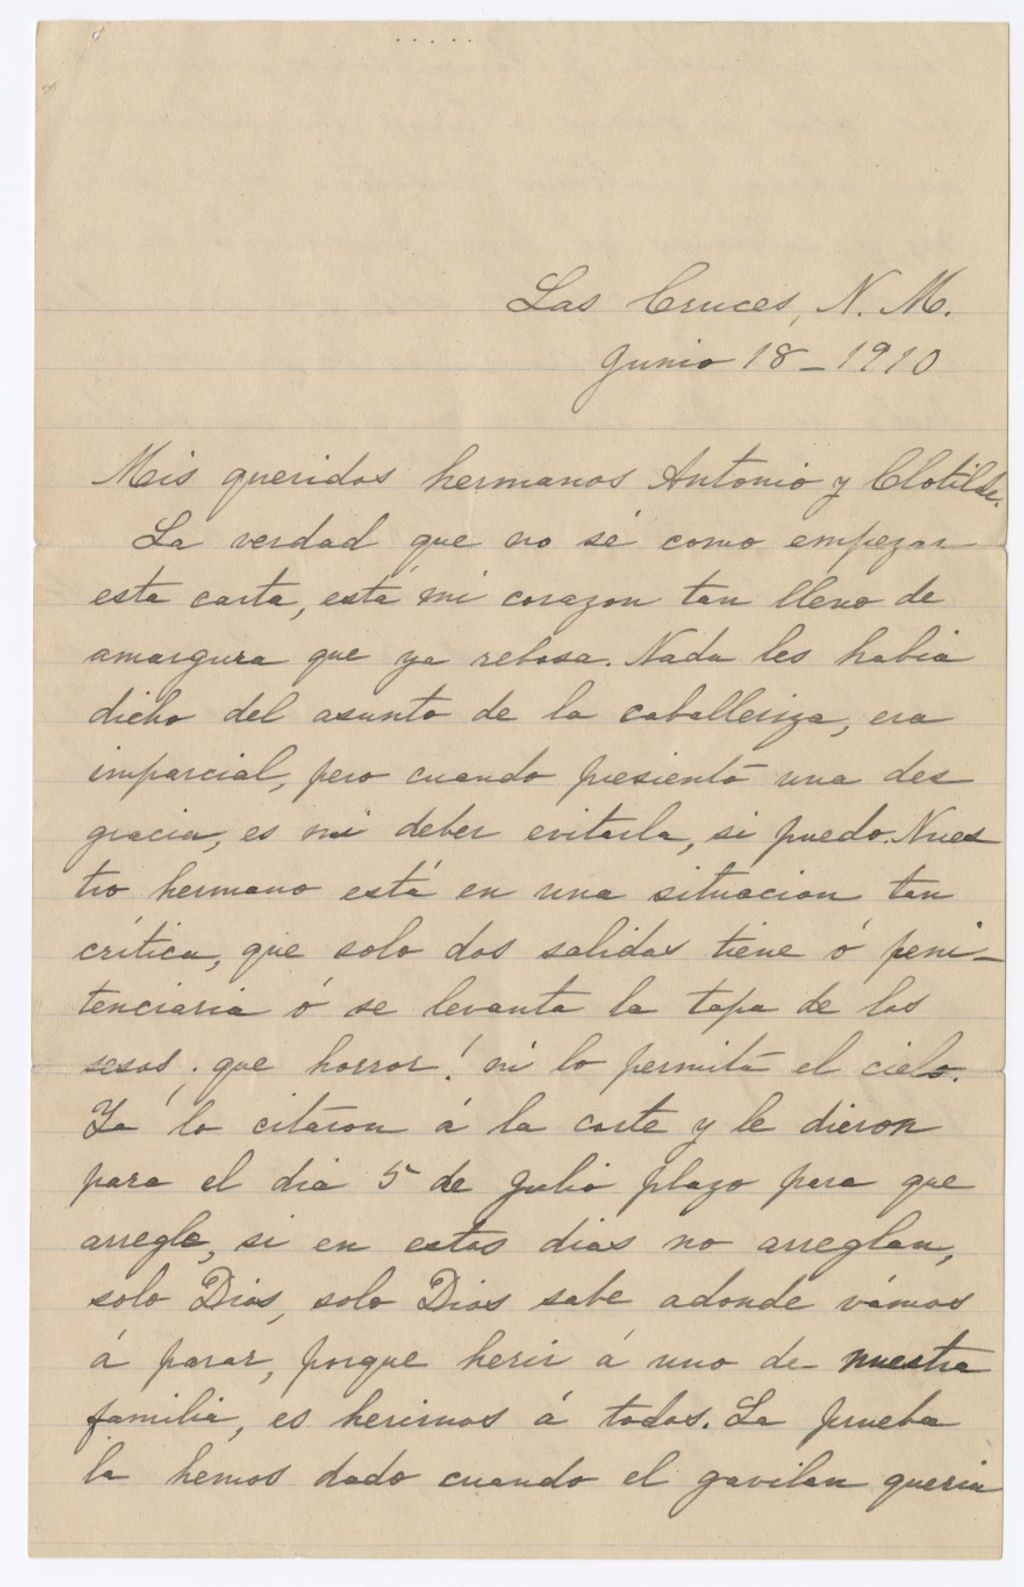 Las Cruces, N. M.
Junio 18 - 1910
Mis queridos hermanos Antonio y Clotilde.
La verdad que no sé como empezar
esta carta, está mi corazon tan lleno de
amargura que ya rebosa. Nada les habia
dicho del asunto de la caballeriza, era
imparcial, pero cuando presientó una des
gracia, es mi deber evitarla, si puedo. Nues
tro hermano está en una situacion tan
crítica, que solo dos salidas tiene ó peni-
tenciaria ó se levanta la tapa de los
sesos; que horror! ni lo permitá el cielo.
Ya lo citáron á la corte y le dieron
para el dia 5 de Julio plazo para que
arregle, si en estos dias no arreglan,
solo Dios, solo Dios sabe adonde vámos
á parar, porque herir á uno de nuestra
familia, es herirnos á todos. La prueba
la hemos dado cuando el gavilan queria